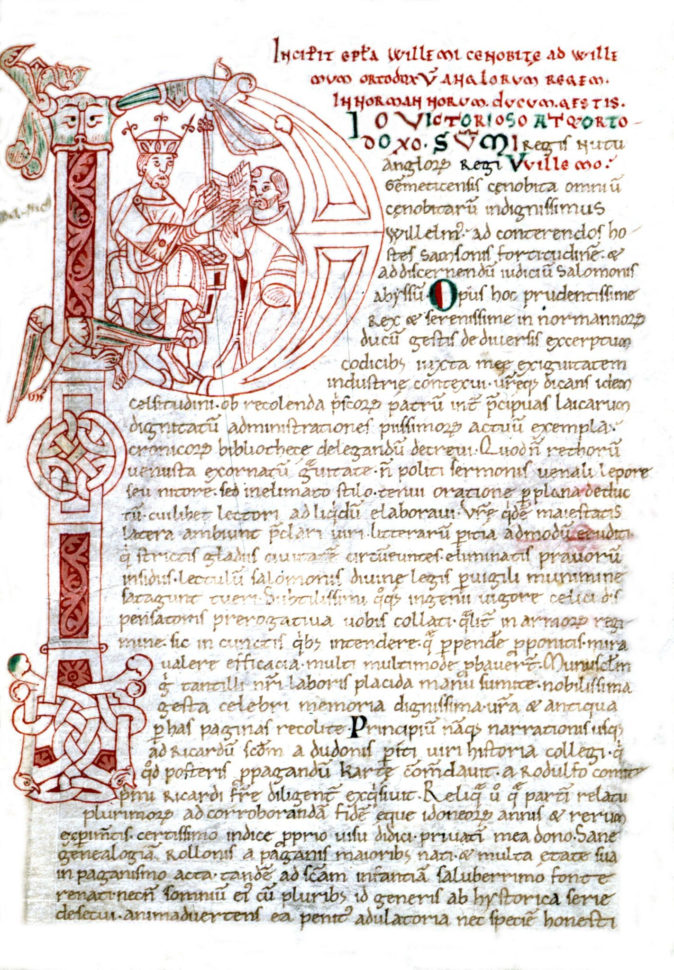 Incipit epła willemi cenobitę ad wille
mum ortodoxū anglorum regem.
in normannorum ducum gestis.
PIO VICTORIOSO ATQ ORTO
DOXO. SŪMI regis nutu
angloꝝ regi Vvillelmo.
Gemeticensis cenobita omniū
cenobitarū indignissimus
Willelm᷒. ad conterendos ho
stes samsonis fortitudinē. &
ad discernendū iudiciū salomonis
abyssū. Opus hoc prudentissime
rex & serenissime in normannoꝝ
ducū gestis de diversis excerptum
codicib; iuxta meę exiguitatem
industrie contexui. uręq; dicans idem
celsitudini. ob recolenda p̄scoꝝ patrū int̄ p̄cipuas laicarum
dignitatū administrationes piissimoꝝ actuū exempla.
cronicoꝝ bibliothece delegandū decreui. Quod n̄ rethorū
uenusta exornatū g̃uitate. n̄ politi sermonis uenali lepore
seu nitore. sed inelimato stilo. tenui oratione p̱ plana deduc
tū. cuilibet lectori ad liq̇dū elaboraui. Vrę q̇dē maiestatis
latera ambiunt p̄clari uiri. litterarū pitia admodū eruditi
q̇ strictis gladiis ciuitatē circūeuntes. eliminatis prauorū
insidiis. lectulū salomonis diuine legis p̱uigili munimine
satagunt tueri. Subtilissimi q̇q; ingenii uigore celici dis
pensatoris prerogatiua uobis collati. q̇lit̄ in armoꝝ regi
mine. sic in cunctis q̇b; intendere. q̨ p̱pendē p̱ponitis. mira
ualere efficacia. multi multimode p̱bauer̄t. Munusclm̄
g̊ tantilli nr̄i laboris placida manu sumite. nobilissima
gesta celebri memoria dignissima. ur̄a & antiqua
p̱ has paginas recolite. Principiū nāq; narrationis usq;
ad ricardū scdm̄ a dudonis p̱iti uiri historia collegi. q̇
qd̄ posteris p̱pagandū kartę cōm̄dauit. a Rodulfo comite
primi ricardi fr̄e diligent̄ exq̇siuit. Reliq̨ u̇ q̨ partī relatu
plurimoꝝ ad corroborandā fidē eque idoneoꝝ annis & rerum
experim̄tis. certissimo indice p̱prio uisu didici. priuati mea dono. Sane
genealogiā Rollonis a paganis maiorib; nati. & multa etate sua
in paganismo acta. tandē ad scām infantiā saluberrimo fonte
renati. necn̄ somniū ei᷒ cū plurib; id generis ab hystorica serie
desecui. animaduertens ea penit᷒ adulatoria nec speciē honesti